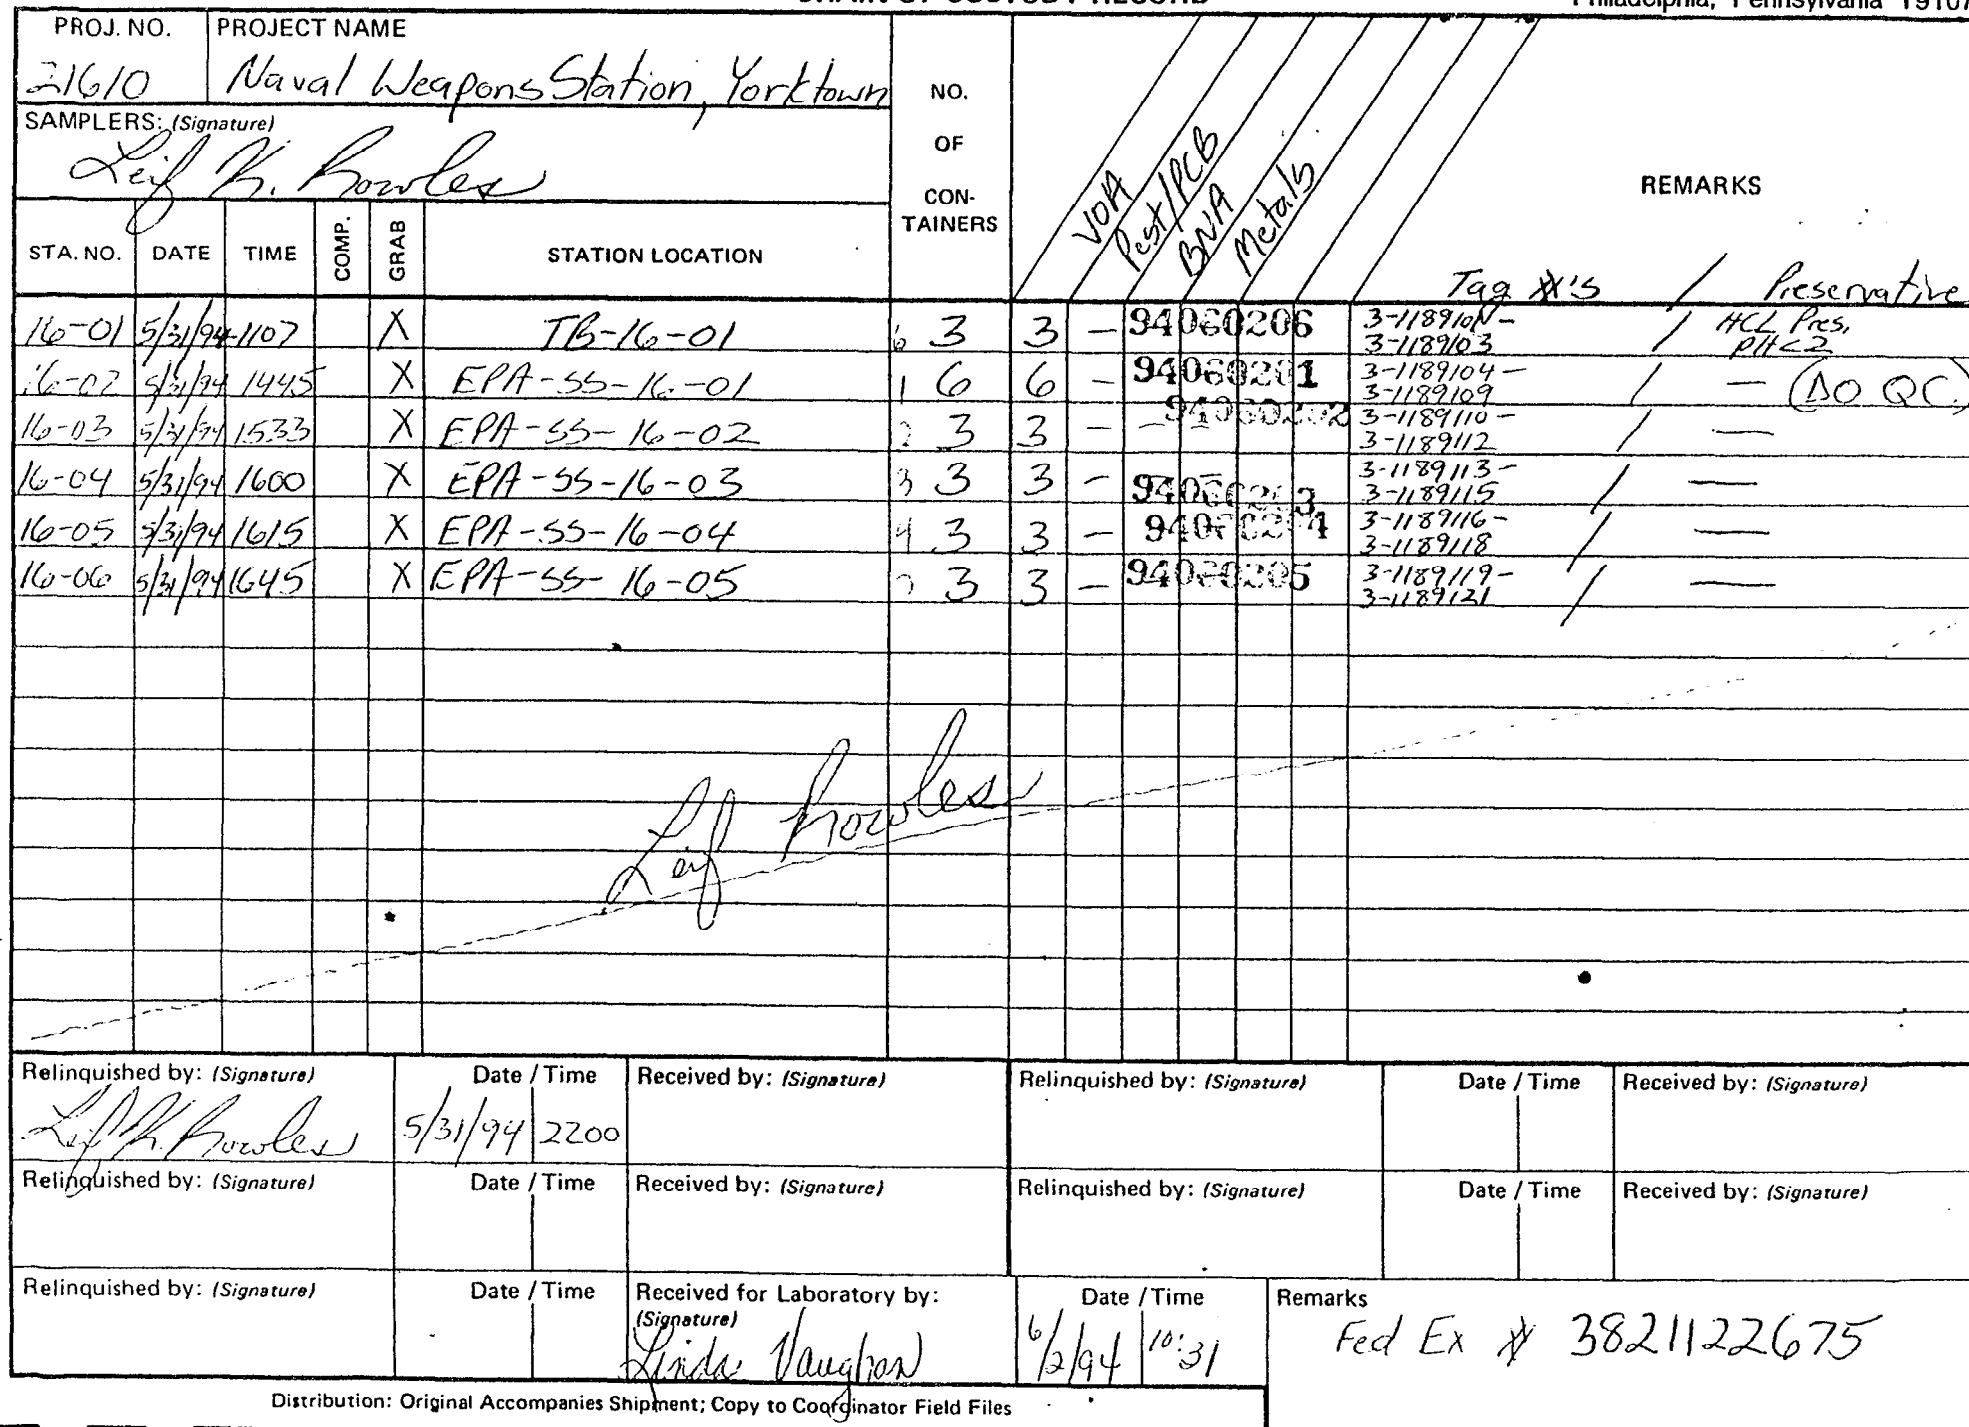 Philadelphia, Pennsylvania 19107
PROJ. NO. PROJECT NAME
21610 Naval Weapons Station, Yorktown
SAMPLERS: (Signature)
Leif K. Rowles
NO.
OF
CON-
TAINERS
VOA
Pest/PCB
BNA
Metals
REMARKS
STA. NO. DATE TIME COMP. GRAB STATION LOCATION
Tag #'s / Preservative
16-01 5/31/94 1107 X TB-16-01 6 3 3 - 94060206 3-1189101- / HCL Pres.
3-1189103 pH<2
16-02 5/31/94 1445 X EPA-SS-16-01 1 6 6 - 94060201 3-1189104- / — (DO QC)
3-1189109
16-03 5/31/94 1533 X EPA-SS-16-02 2 3 3 - - 94060202 3-1189110- / —
3-1189112
16-04 5/31/94 1600 X EPA-SS-16-03 3 3 3 - 94060203 3-1189113- / —
3-1189115
16-05 5/31/94 1615 X EPA-SS-16-04 4 3 3 - 94060204 3-1189116- / —
3-1189118
16-06 5/31/94 1645 X EPA-SS-16-05 3 3 - 94060205 3-1189119- / —
3-1189121
Leif Rowles
Relinquished by: (Signature) Date / Time Received by: (Signature) Relinquished by: (Signature) Date / Time Received by: (Signature)
Leif K. Rowles 5/31/94 2200
Relinquished by: (Signature) Date / Time Received by: (Signature) Relinquished by: (Signature) Date / Time Received by: (Signature)
Relinquished by: (Signature) Date / Time Received for Laboratory by: Date / Time Remarks
(Signature)
Linda Vaughan 6/2/94 10:31 Fed Ex # 3821122675
Distribution: Original Accompanies Shipment; Copy to Coordinator Field Files